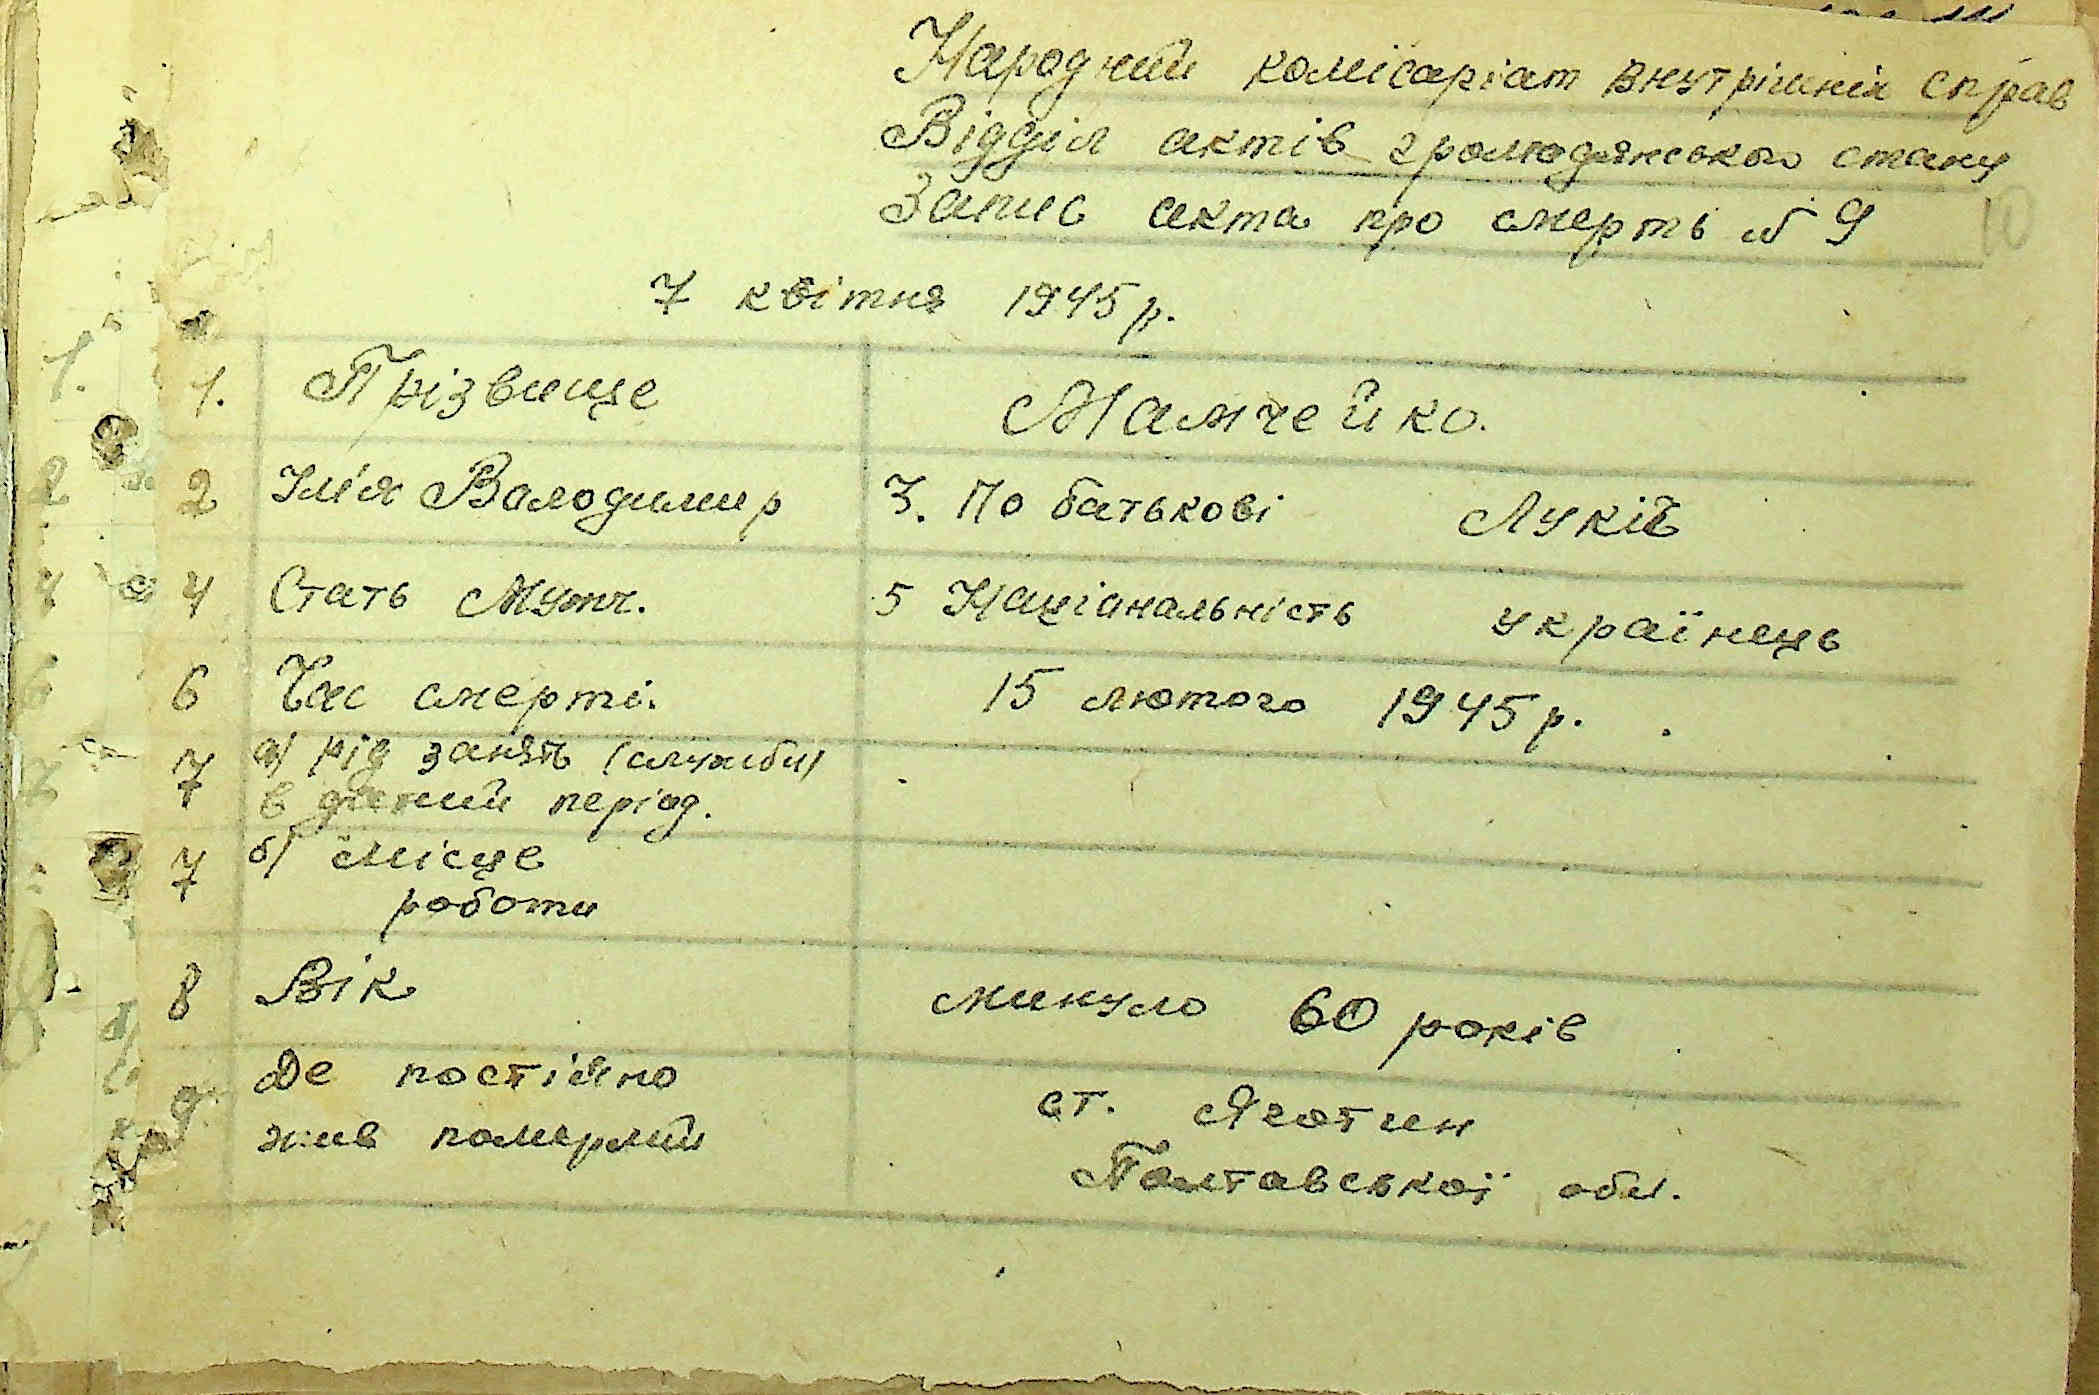 Народний комісаріат внутрішніх справ
Відділ актів громодянського стану
Запис акта про смерть № 9
10
7 квітня 1945 р.
1. Прізвище Мамчейко.
2 Імія Володимир 3. По батькові Лукіч
4 Стать Мужч. 5 Націанальність українець
6 Час смерті. 15 лютого 1945 р.
7 а) рід занять (служби)
в даний період.
7 б) місце
роботи
8 Вік минуло 60 років
9. Де постіяно ст. Яготин
жив померлий Полтавської обл.